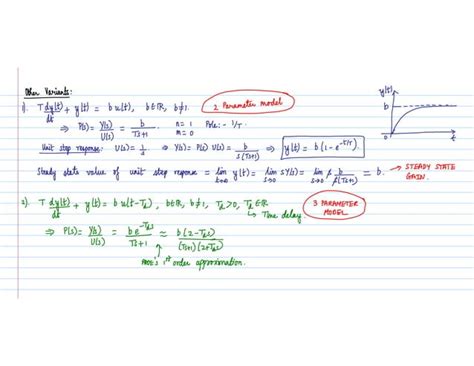 Other Variants:
1). T dy(t)/dt + y(t) = b u(t), b∈ℝ, b≠1. 2 Parameter model
⇒ P(s) = Y(s)/U(s) = b/(Ts+1) n=1 m=0 Pole: -1/T
Unit step response: U(s) = 1/s ⇒ Y(s) = P(s) U(s) = b/(s(Ts+1)) ⇒ y(t) = b(1-e^{-t/T})
Steady state value of unit step response = lim t→∞ y(t) = lim s→0 sY(s) = lim s→0 s b/(s(Ts+1)) = b. → STEADY STATE GAIN.
y(t)
b
0
t
2). T dy(t)/dt + y(t) = b u(t-T_d), b∈ℝ, b≠1, T_d>0, T_d∈ℝ 3 PARAMETER MODEL
↳ Time delay
⇒ P(s) = Y(s)/U(s) = b e^{-T_d s}/(Ts+1) ≈ b(2-T_d s)/((Ts+1)(2+T_d s))
1st order approximation.